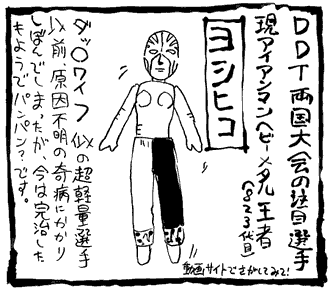 DDT両国大会の注目選手
ヨシヒコ
現アイアンマンヘビーメタル王者
(823代目)
ダッ〇ワイフ似の超軽量選手
以前、原因不明の奇病にかかり
しぼんでしまったが、今は完治した
もようでパンパン?です。
動画サイトでさがしてみて!